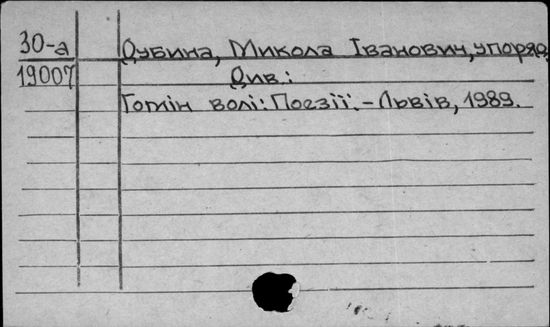 30-а Дубина, Микола Іванович, упоряд.
19007 Див.:
Гомін волі: Поезії. - Львів, 1989.